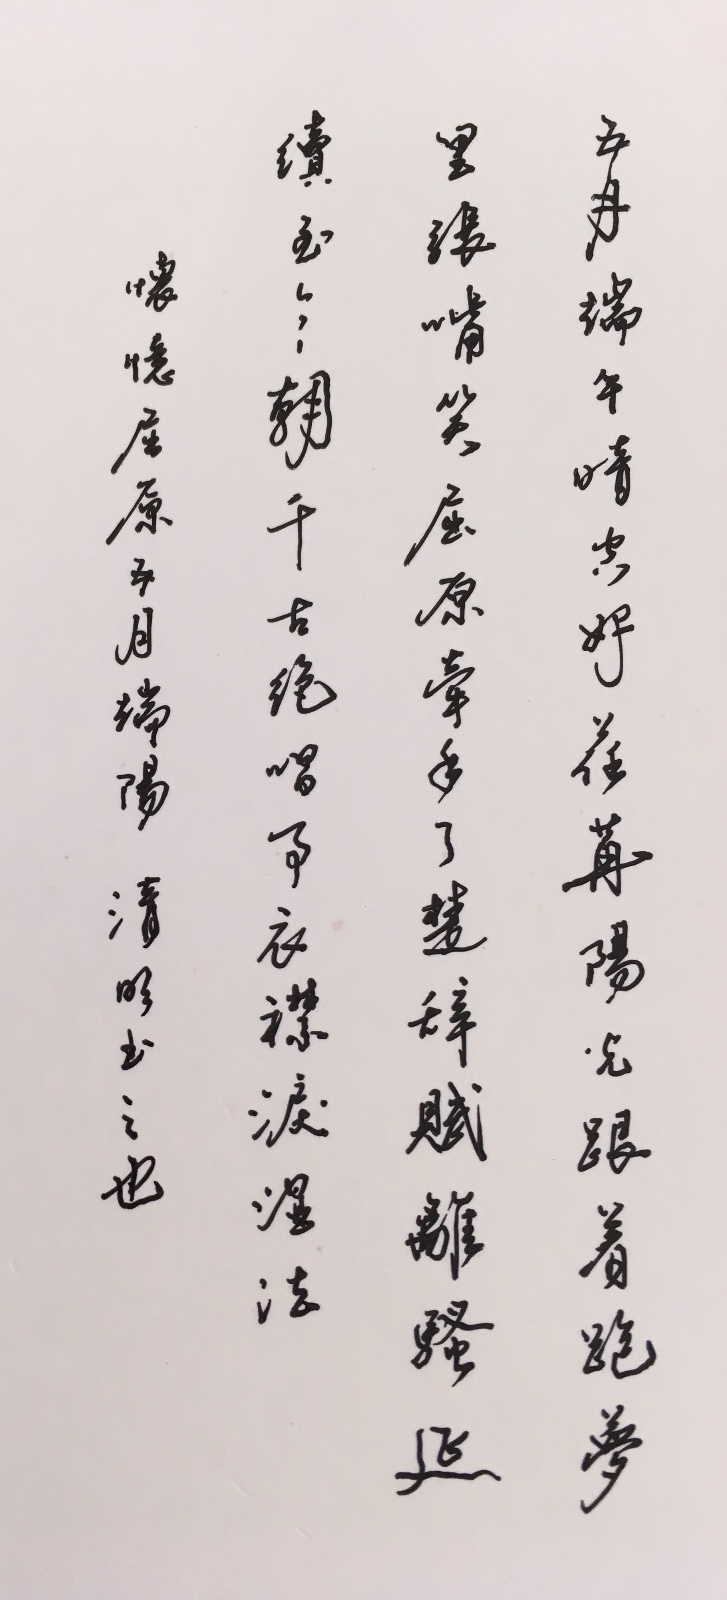 五月端午晴空好荏苒陽光跟着跑夢
里張嘴笑屈原牽手了楚辭賦離騷延
續至今朝千古絕唱衣襟淚濕
懷憶屈原五月端陽 清明书之也